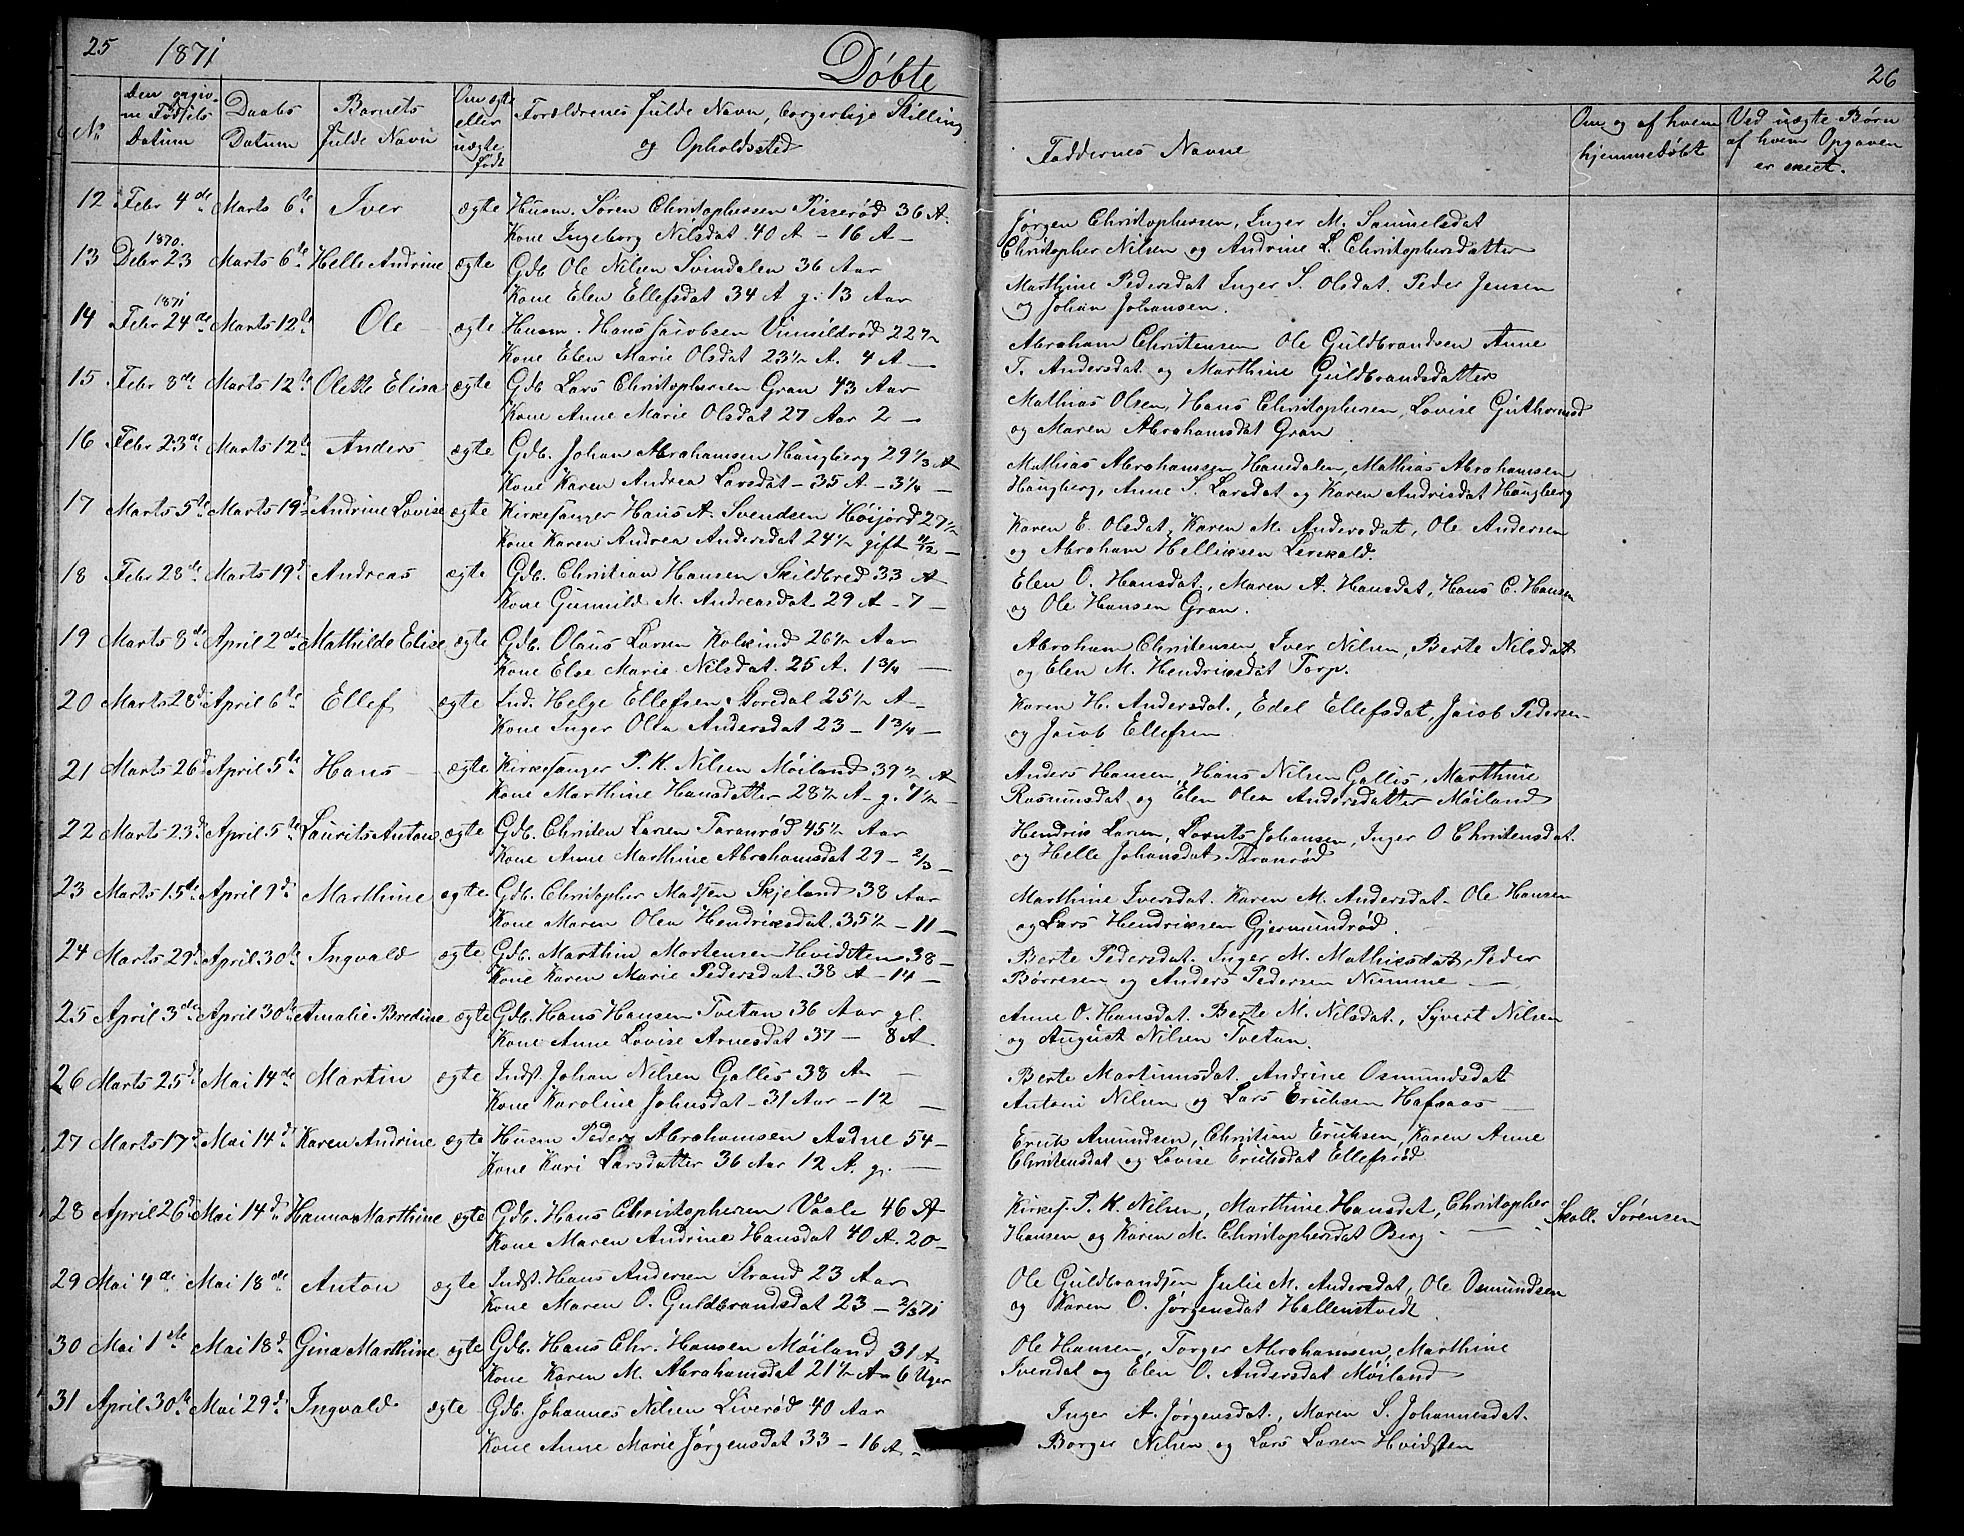 25 1871 Døbte 26
No
Den angivne Fødsels Datum
Daabs Datum
Barnets fulde Navn
Om ægte eller uægte født
Forældrenes fulde Navn, borgerlige Stilling og Opholdssted
Faddernes Navne
Om og af hvem hjemmedøbt
Ved uægte Børn af hvem Opgaven er skeet.
12 Febr 4de Marts 6te Iver ægte Husm. Søren Christophersen Pisserød 36 A.
Kone Ingeborg Nilsdat. 40 A - 16 A -
Jørgen Christophersen, Inger M. Samuelsdat
Christopher Nilsen og Andrine L. Christophersdatter
1870.
13 Debr 23 Marts 6te Helle Andrine ægte Gdb Ole Nilsen Svindalen 36 Aar
Kone Elen Ellefsdat 34 A g. 13 Aar
Marthine Pedersdat Inger S. Olsdat. Peder Jensen
og Johan Johansen.
1871
14 Febr 24de Marts 12te Ole ægte Husm. Hans Jacobsen Vinsildrød 22 1/2
Kone Elen Marie Olsdat 23 1/2 A. 4 A -
Abraham Christensen Ole Guldbrandsen Anne
T. Andersdat og Marthine Guldbrandsdatter
15 Febr 8de Marts 12te Olette Elisa ægte Gdb Lars Christophersen Gran 43 Aar
Kone Anne Marie Olsdat 27 Aar 2 -
Mathias Olsen, Hans Christophersen, Lovise Guthormsd
og Maren Abrahamsdat Gran
16 Febr 23de Marts 12te Anders ægte Gdb. Johan Abrahamsen Haugberg 29 1/3 A
Kone Karen Andrea Larsdat - 35 A - 3 1/4 -
Mathias Abrahamsen Hansdalen, Mathias Abrahamsen
Haugberg, Anne S. Larsdat og Karen Andrisdat Haugberg
17 Marts 5te Marts 19d Andrine Lovise ægte Kirkesanger Hans A. Svendsen Høijord 27 1/2
Kone Karen Andrea Andersdat 24 1/2 gift
Karen E. Olsdat, Karen M. Andersdat, Ole Andersen
og Abraham Helliksen Lerskald.
18 Febr 28de Marts 19d Andreas ægte Gdb. Christian Hansen Skildbred 33 A
Kone Gunnild M. Andreasdat 29 A - 7 -
Elen O. Hansdat., Maren A. Hansdat, Hans C. Hansen
og Ole Hansen Gran.
19 Marts 8de April 2de Mathilde Elise ægte Gdb. Olaus Larsen Kolkind 26 1/2 Aar
Kone Else Marie Nilsdat. 25 A. 1 3/4 -
Abraham Christensen, Iver Nilsen, Berte Nilsdat
og Elen M. Hendriksdat Torp.
20 Marts 28d April 6te Ellef ægte Ind. Helge Ellefsen Storedal 25 1/2 A -
Kone Inger Olea Andersdat 23 - 1 3/4 -
Karen H. Andersdat., Edel Ellefsdat, Jacob Pedersen
og Jacob Ellefsen
21 Marts 26d April 5te Hans ægte Kirkesanger P. K. Nilsen Møiland 39 1/2 A
Kone Marthine Hansdatter 28 1/2 A - g. 1 1/2 -
Anders Hansen, Hans Nilsen Gallis, Marthine
Rasmusdat og Elen Olea Andersdatter Møiland
22 Marts 23d April 5te Laurits Anton ægte Gdb. Christen Larsen Taranrød 45 1/2 Aar
Kone Anne Marthine Abrahamsdat 29 - 2/3 -
Hendrik Larsen, Lorents Johansen, Inger O Christensdat.
og Helle Johansdat Taranrød
23 Marts 15de April 9d Marthine ægte Gdb. Christopher Madsen Skjeland 38 Aar
Kone Maren Olea Hendriksdat. 35 1/2 - 11 -
Marthine Iversdat. Karen M. Andersdat. Ole Hansen
og Lars Hendriksen Gjermundrød.
24 Marts 29d April 30te Ingvald ægte Gdb. Marthin Mortensen Hvidsten 38 -
Kone Karen Marie Pedersdat. 38 A - 14 -
Berte Pedersdat. Inger M. Mathiesdat, Peder
Børresen og Anders Pedersen Numme -
25 April 3de April 30te Amalie Bredine ægte Gdb. Hans Hansen Tvetan 36 Aar gl.
Kone Anne Lovise Arnesdat 37 - 8 A.
Anne O. Hansdat. Berte M. Nilsdat., Syvert Nilsen
og August Nilsen Tvetan.
26 Marts 25d Mai 14de Martin ægte Indst. Johan Nilsen Gallis 38 A -
Kone Karoline Johnsdat - 31 Aar - 12 -
Berte Martinusdat. Andrine Osmundsdat
Antoni Nilsen og Lars Eriksen Hafsaas -
27 Marts 17d Mai 14d Karen Andrine ægte Husm Peder Abrahamsen Aadne 54 -
Kone Kari Larsdatter 36 Aar 12 A. g. -
Erik Amundsen, Christian Eriksen, Karen Anne
Christensdat og Lovise Eriksdat Ellefsrød
28 April 26d Mai 14d Hanna Marthine ægte Gdb. Hans Christophersen Vaale 46 A
Kone Maren Andrine Hansdat 40 A. 20 -
Kirkes. P. K. Nilsen, Marthine Hansdat, Christopher
Hansen og Karen M. Christophersdat Berg -
Skoll. Sørensen
29 Mai 4de Mai 18de Anton ægte Indst. Hans Andersen Strand 23 Aar
Kone Maren O. Guldbrandsdat 23 - 2/3 71
Ole Guldbrandsen Julie M. Andersdat, Ole Osmundsen
og Karen O. Jørgensdat Hallenstvedt
30 Mai 1ste Mai 18d Gina Marthine ægte Gdb. Hans Chr. Hansen Møiland 31 A
Kone Karen M. Abrahamsdat 21 1/2 A - 6 Uger
Ole Hansen, Torger Abrahamsen, Marthine
Iversdat og Elen O. Andersdat Møiland
31 April 30te Mai 29d Ingvald ægte Gdb. Johannes Nilsen Liverød 40 Aar
Kone Anne Marie Jørgensdat 33 - 16 A -
Inger A. Jørgensdat., Maren S. Johannesdat.
Borger Nilsen og Lars Larsen Hvidsten